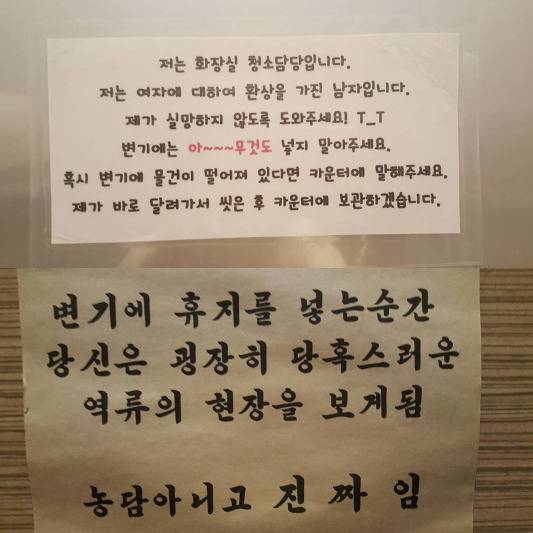 저는 화장실 청소담당입니다.
저는 여자에 대하여 환상을 가진 남자입니다.
제가 실망하지 않도록 도와주세요! T_T
변기에는 아~~~무것도 넣지 말아주세요.
혹시 변기에 물건이 떨어져 있다면 카운터에 말해주세요.
제가 바로 달려가서 씻은 후 카운터에 보관하겠습니다.
변기에 휴지를 넣는순간
당신은 굉장히 당혹스러운
역류의 현장을 보게됨
농담아니고 진 짜 임